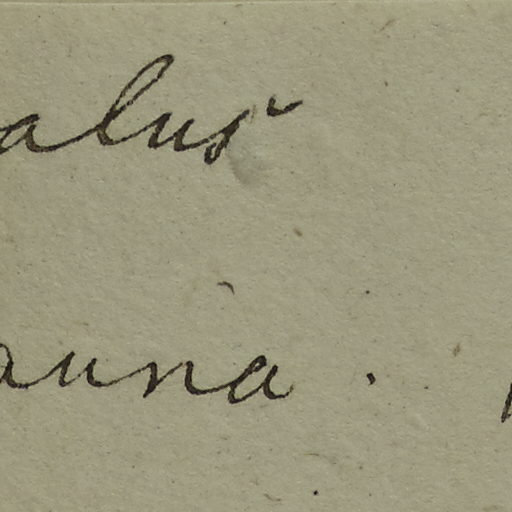 alus
auna.